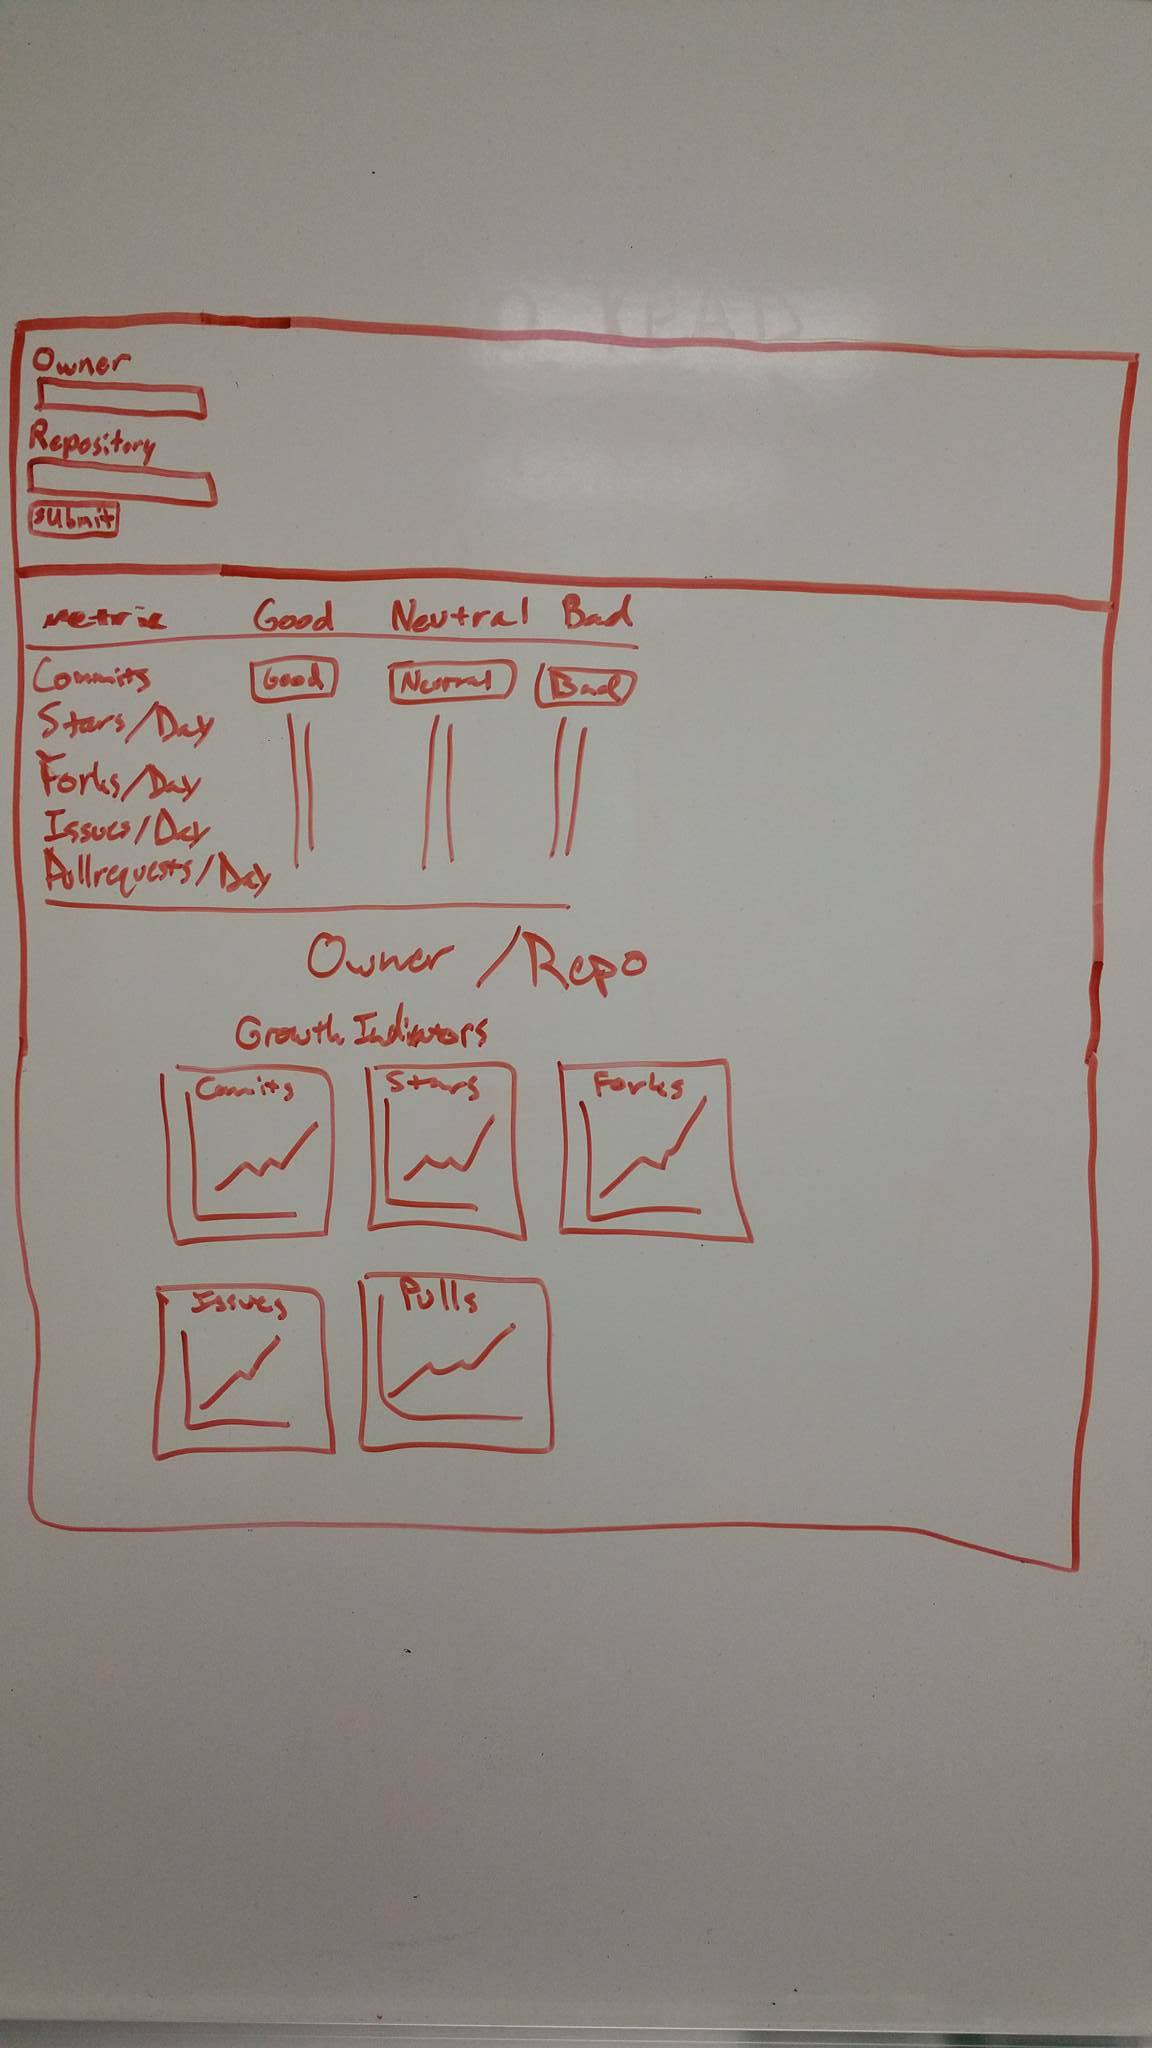 Owner
Repository
submit
metric Good Neutral Bad
Commits Good Neutral Bad
Stars/Day
Forks/Day
Issues/Day
Pullrequests/Day
Owner /Repo
Growth Indicators
Commits Stars Forks
Issues Pulls